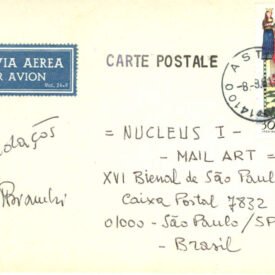 VIA AEREA
PAR AVION
CARTE POSTALE
AST
-8-8.
14100
= NUCLEUS I -
- MAIL ART =
XVI Bienal de São Paulo
Caixa Postal 7832
01000 - São Paulo / SP
- Brasil -